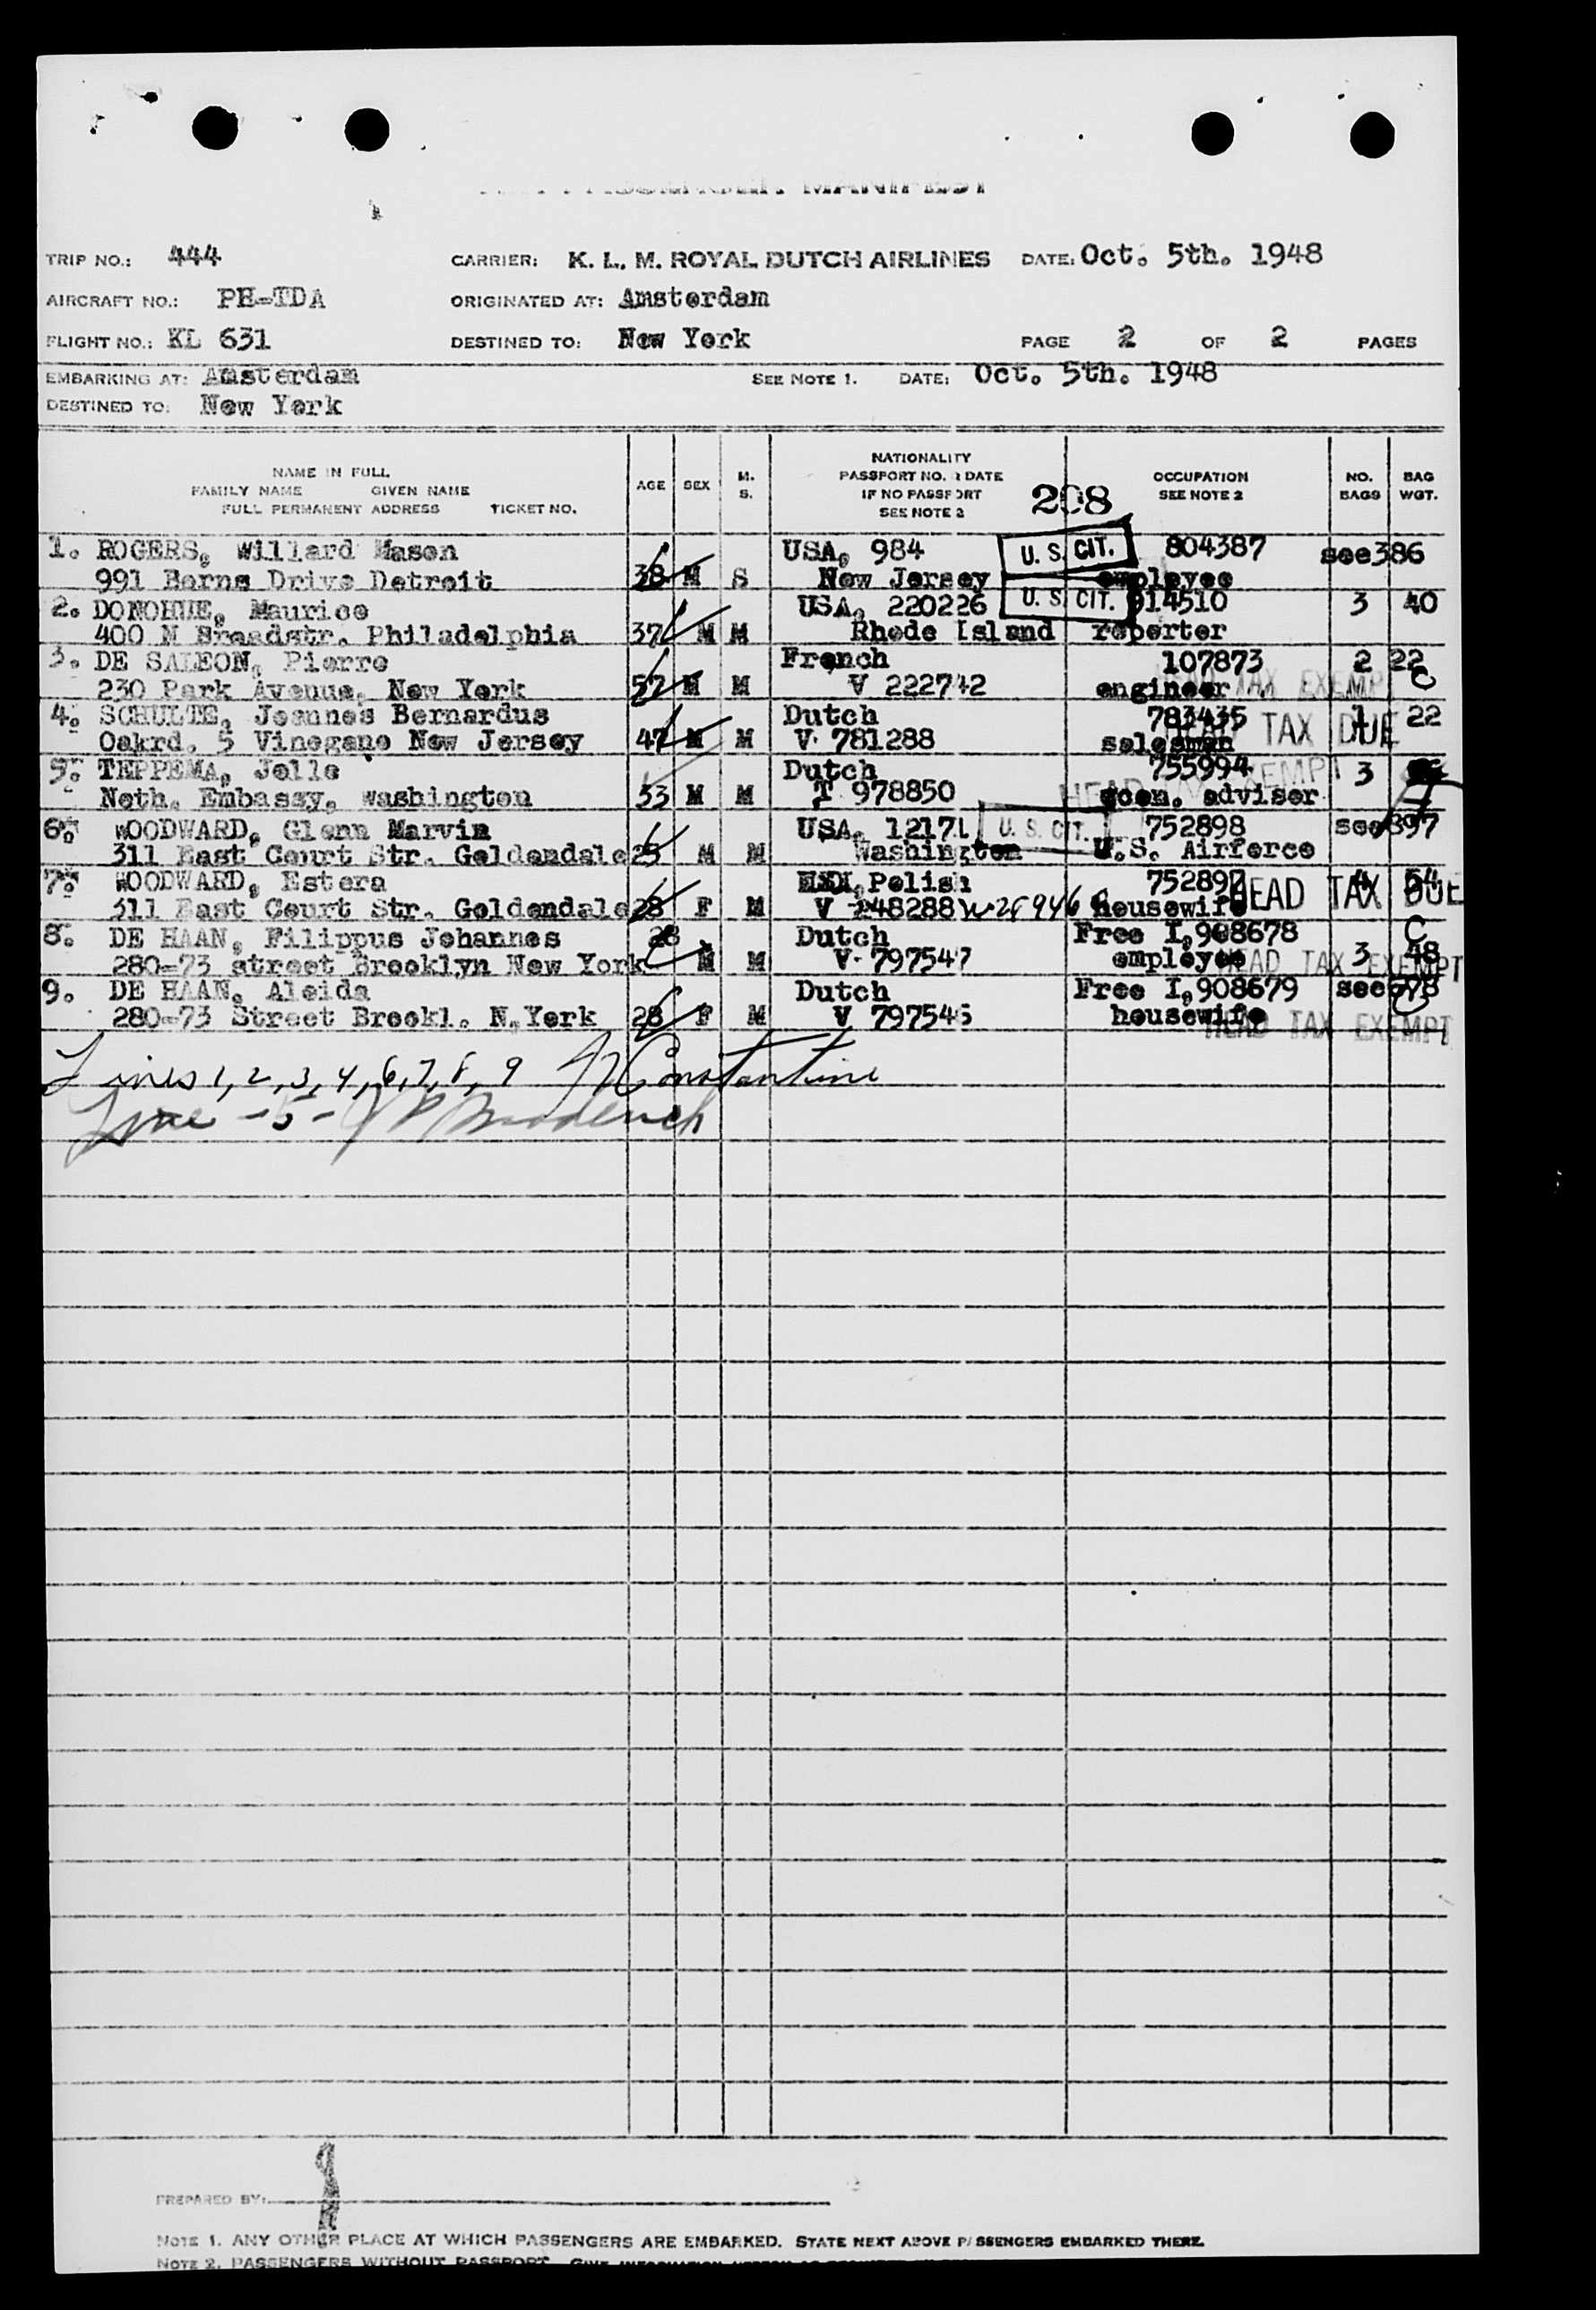 PASSENGER MANIFEST
TRIP NO.: 444 CARRIER: K. L. M. ROYAL DUTCH AIRLINES DATE: Oct. 5th. 1948
AIRCRAFT NO.: PH-TDA ORIGINATED AT: Amsterdam
FLIGHT NO.: KL 631 DESTINED TO: New York PAGE 2 OF 2 PAGES
EMBARKING AT: Amsterdam SEE NOTE 1. DATE: Oct. 5th. 1948
DESTINED TO: New York
NAME IN FULL
FAMILY NAME GIVEN NAME
FULL PERMANENT ADDRESS TICKET NO.
AGE SEX M. S.
NATIONALITY
PASSPORT NO. & DATE
IF NO PASSPORT
SEE NOTE 2
208
OCCUPATION
SEE NOTE 2
NO. BAGS
BAG WGT.
1. ROGERS, Willard Mason USA, 984 U. S. CIT. 804387 see386
991 Borns Drive Detroit 38 M S New Jersey employee
2. DONOHUE, Maurice USA, 220226 U. S. CIT. 914510 3 40
400 N Broadstr. Philadelphia 37 M M Rhode Island reporter
3. DE SALEON, Pierre French 107873 2 22
230 Park Avenue, New York 57 M M V 222742 engineer HEAD TAX EXEMPT C
4. SCHULTE, Joannes Bernardus Dutch 783435 1 22
Oakrd. 5 Vinegano New Jersey 47 M M V 781288 salesman HEAD TAX DUE
5. TEPPEMA, Jelle Dutch 755994 3
Neth. Embassy, Washington 53 M M T 978850 econ. adviser HEAD TAX EXEMPT
6. WOODWARD, Glenn Marvin USA, 12171 U. S. CIT. 752898 see897
311 East Court Str. Goldendale 25 M M Washington U.S. Airforce
7. WOODWARD, Estera Polish 752897 4 54
311 East Court Str. Goldendale 28 F M V 248288 housewife HEAD TAX DUE
8. DE HAAN, Filippus Johannes 28 Dutch Free I,908678 C
280-73 street Brooklyn New York M M V 797547 employee 3 48 HEAD TAX EXEMPT
9. DE HAAN, Aleida Dutch Free I,908679 see678
280-73 Street Brookl. N.York 28 F M V 797545 housewife HEAD TAX EXEMPT C
Lines 1, 2, 3, 4, 6, 7, 8, 9 Constantine
Line - 5 -
PREPARED BY:
NOTE 1. ANY OTHER PLACE AT WHICH PASSENGERS ARE EMBARKED. STATE NEXT ABOVE PASSENGERS EMBARKED THERE.
NOTE 2. PASSENGERS WITHOUT PASSPORT